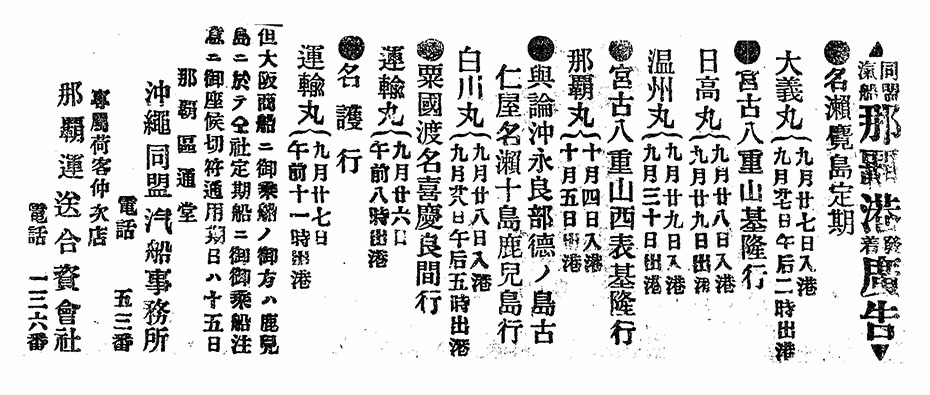 同盟汽船那覇港発着廣告
●名瀬鹿島定期
大義丸 九月廿七日入港
九月廿七日午后二時出港
●宮古八重山基隆行
日高丸 九月廿八日入港
九月廿九日出港
温州丸 九月廿九日入港
九月三十日出港
●宮古八重山西表基隆行
那覇丸 十月四日入港
十月五日出港
●與論沖永良部德ノ島古
仁屋名瀬十島鹿兒島行
白川丸 九月廿八日入港
九月廿八日午后五時出港
●粟國渡名喜慶良間行
運輸丸 九月廿六日
午前八時出港
●名護行
運輸丸 九月廿七日
午前十一時出港
但大阪商船ニ御乘船ノ御方ハ鹿兒
島ニ於テ仝社定期船ニ御乘船注
意ニ御座候切符通用期日ハ十五日
那覇區通堂
沖繩同盟汽船事務所
電話 五三番
專屬荷客仲次店
那覇運送合資會社
電話 一三六番